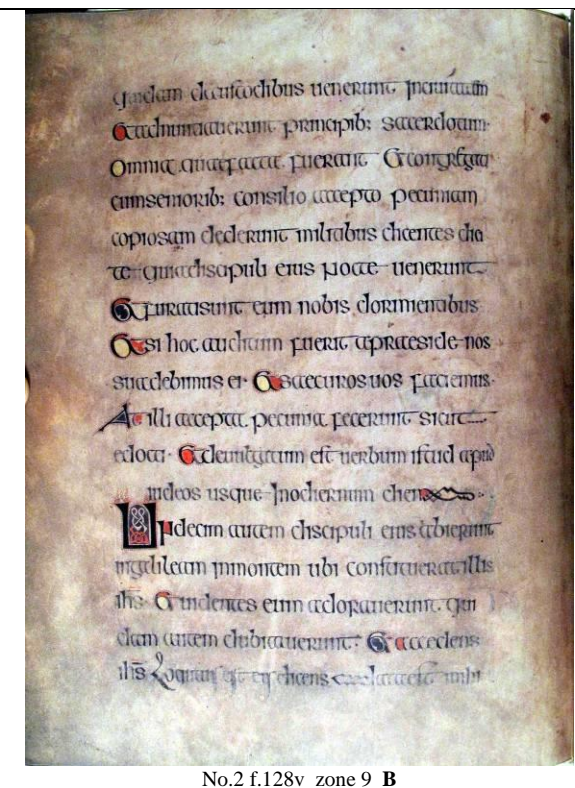 quidam decustodibus uenerunt Inciuitatem
Et adnuntiauerunt principib: sacerdotum·
Omnia quae facta fuerant Et congregati
cumseniorib: consilio accepto pecuniam
copiosam dederunt militibus dicentes dici
te quia discipuli eius nocte uenerunt
Et furati sunt eum nobis dormientibus
Et si hoc auditum fuerit apraeside nos
suadebimus ei· Et saecuros uos faciemus·
At illi accepta pecunia fecerunt sicut
edocti· Et deuulgatum est uerbum istud apud
iudeos usque Inodiernum diem
Undecim autem discipuli eius abierunt
ingalileam inmontem ubi constituerat illis
ihs· Et uidentes eum adorauerunt qui
dam autem dubitauerunt· Et accedens
ihs Loquutus est eis dicens data est mihi
No.2 f.128v zone 9 B